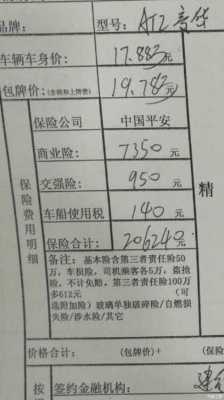 品牌: 型号: ATL豪华
车辆车身价: 17.883元
包牌价:(含税和上牌费) 19.783元
保险费用明细
保险公司 中国平安
商业险: 7350元
交强险: 950元
车船使用税 140元
保险合计: 206240元
备注: 基本险含第三者责任险50
万、车损险,司机乘客各5万;盗抢
险,不计免赔,第三者责任险100万
多612元 (可
选附加险)玻璃单独破碎险/自燃损
失险/涉水险/其它
精
价格合计: (包牌价)+ (保险
按
签约金融机构: